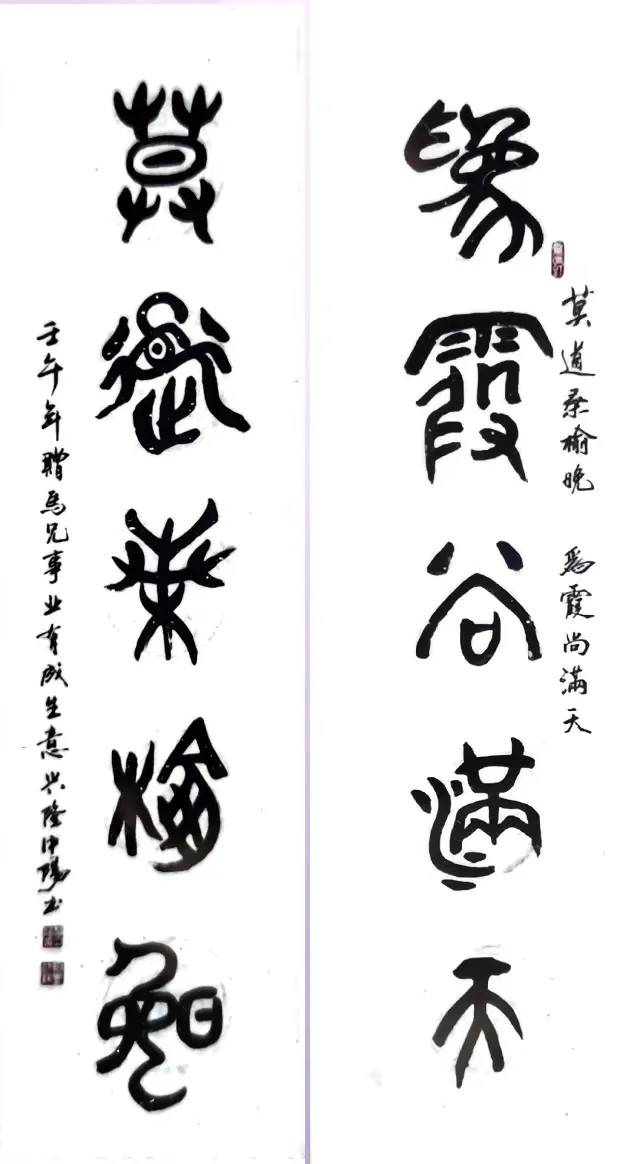 莫道桑榆晚 為霞尚滿天
為霞尚滿天
莫道桑榆晚
壬午年贈馬兄事业有成生意兴隆